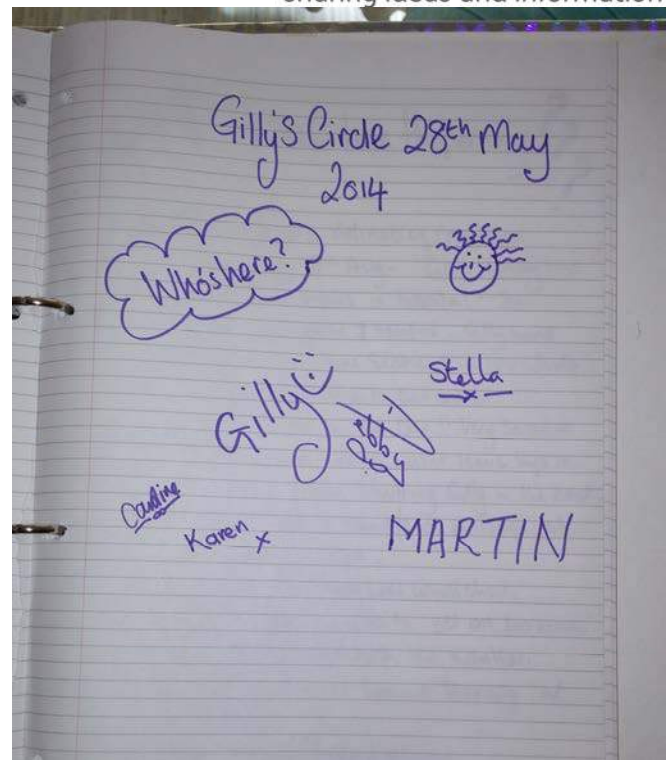 Gilly's Circle 28th May
2014
Who's here?
Gilly
Stella
Debby
Caroline
Karen x
MARTIN